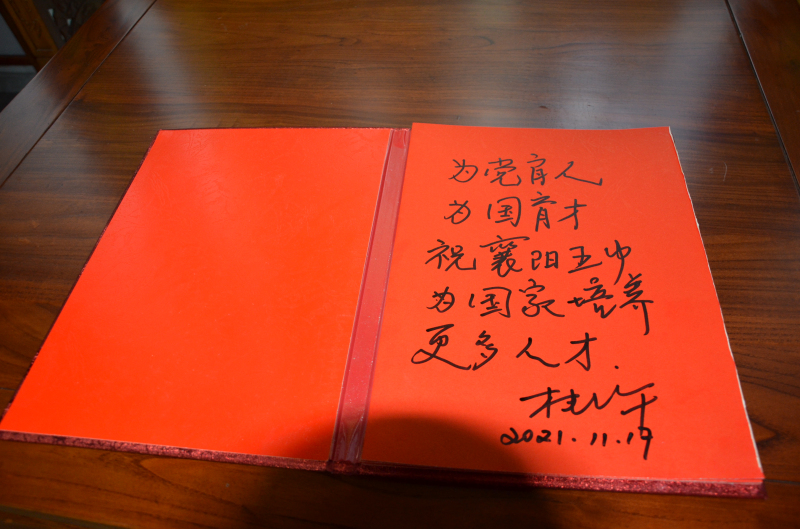 为党育人
为国育才
祝襄阳五中
为国家培养
更多人才.
2021.11.19